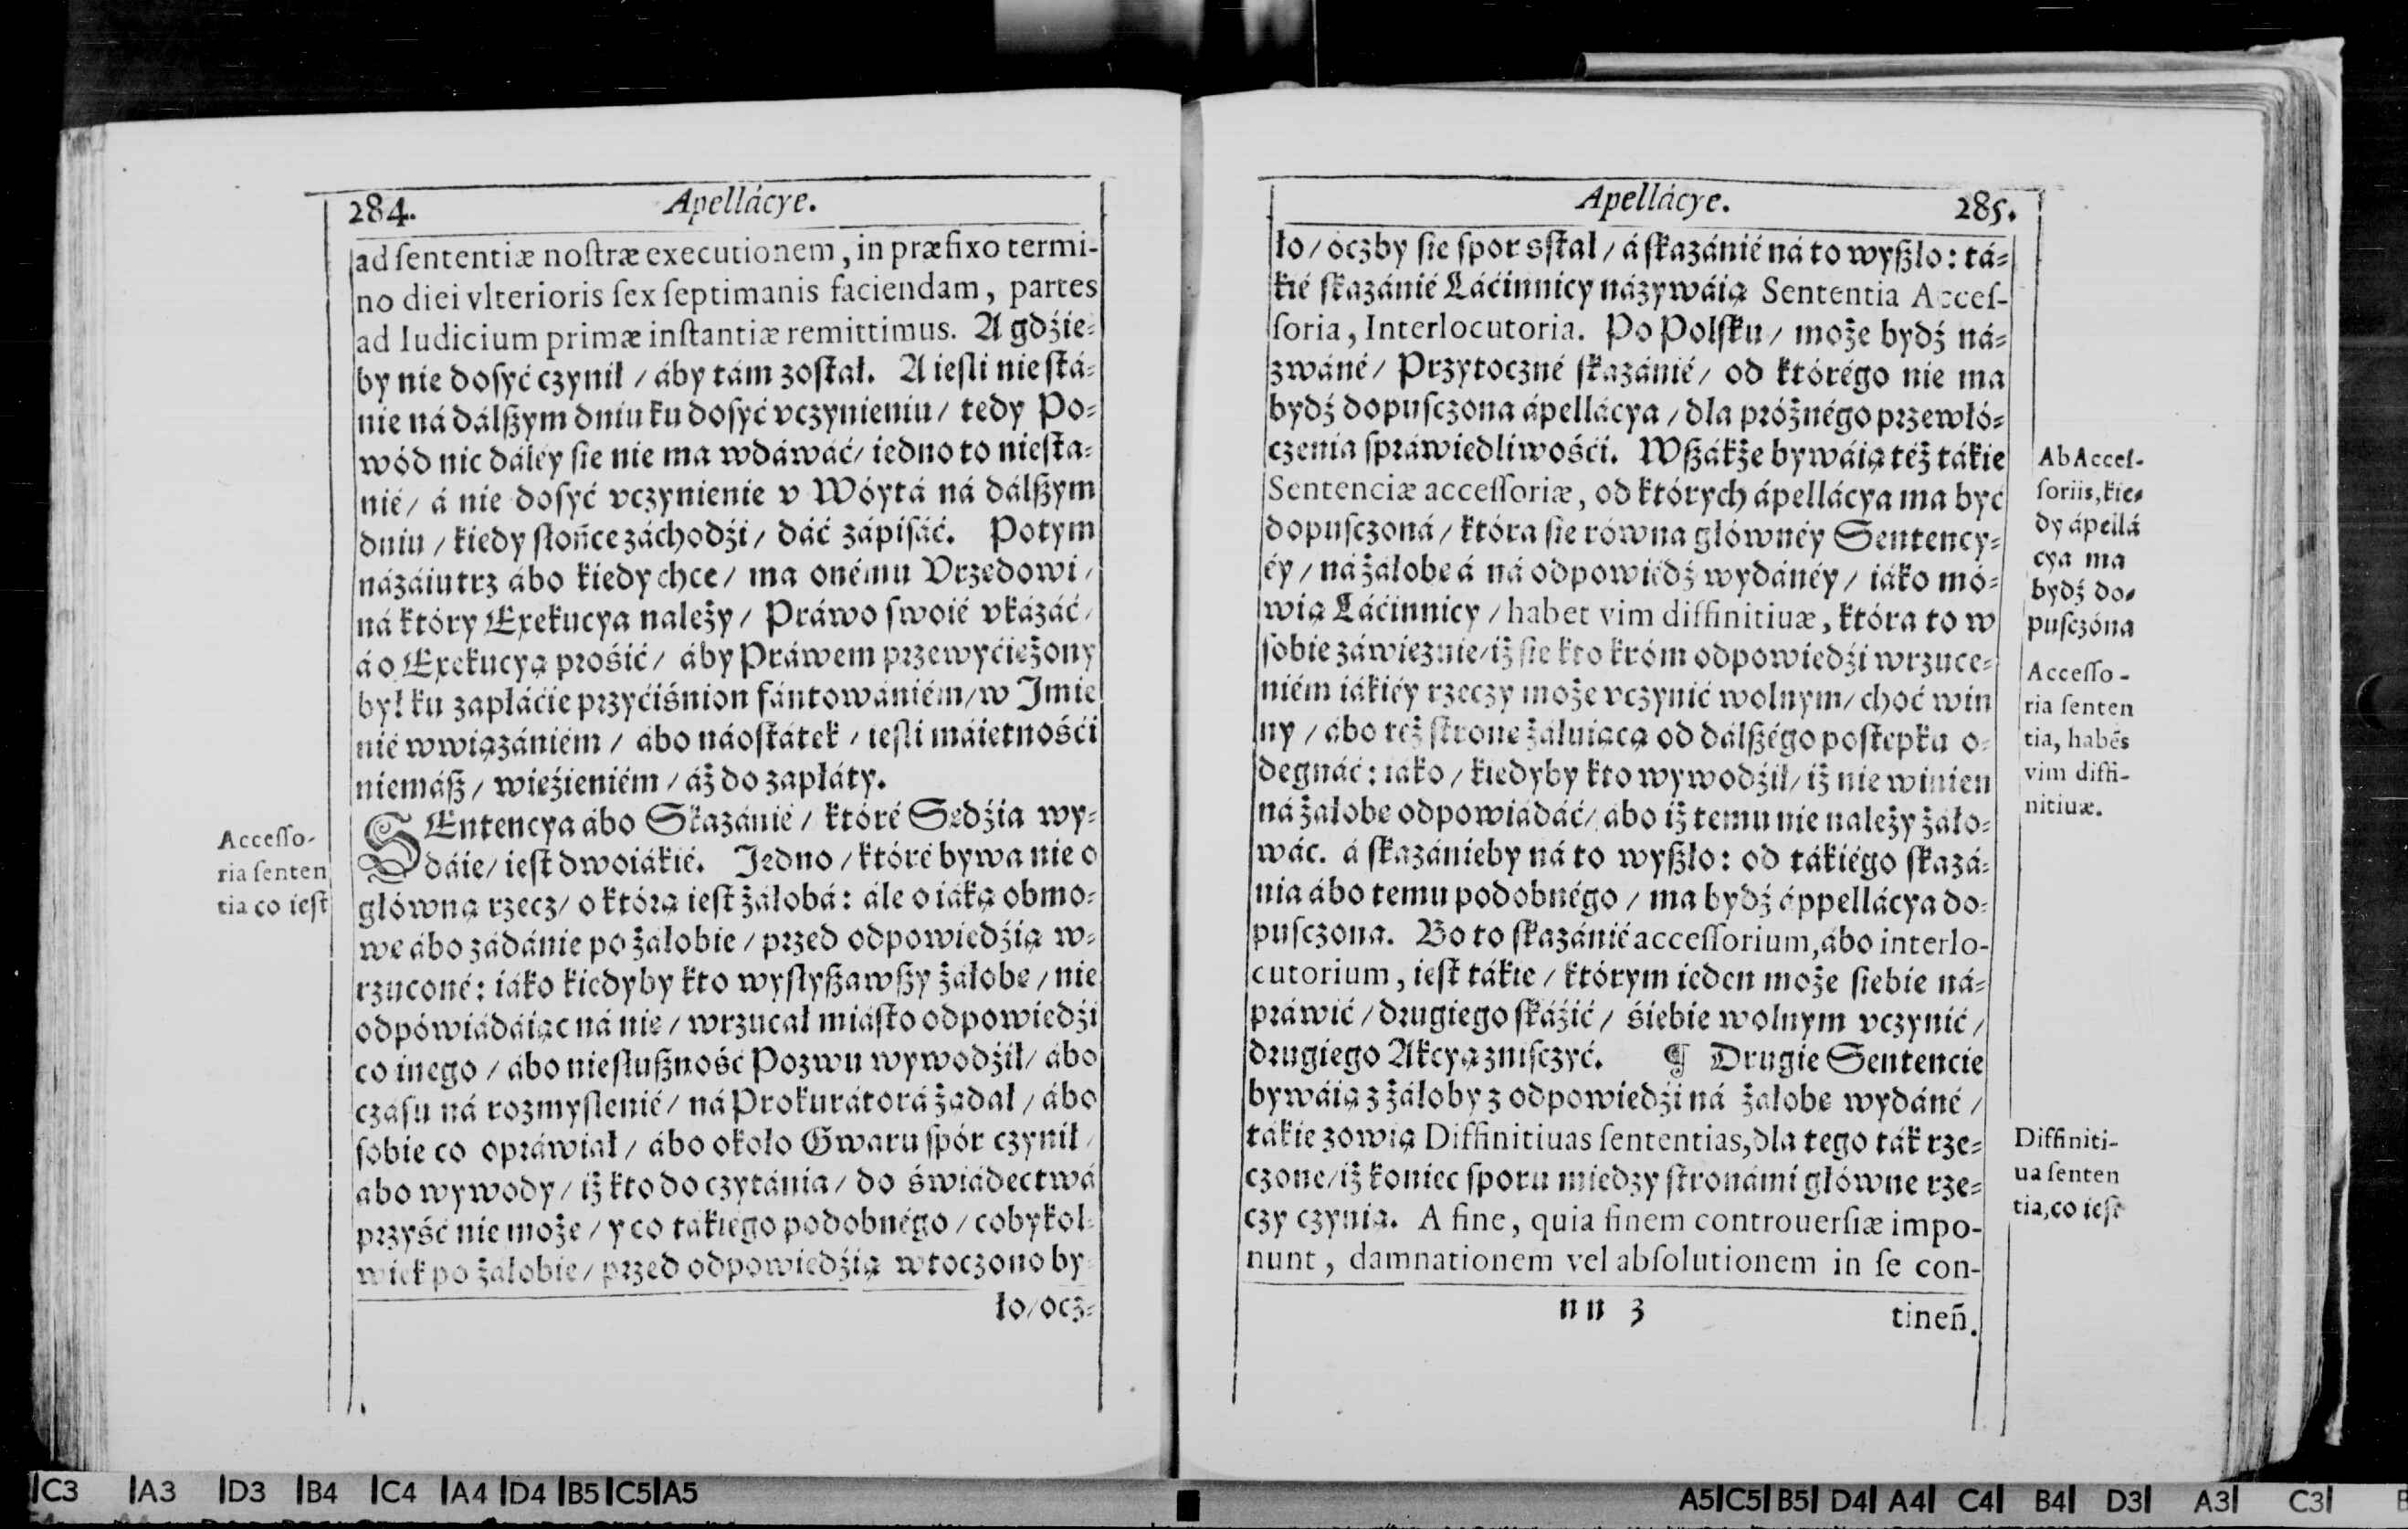 284. Apellácye.
ad ſententiæ noſtræ executionem, in præfixo termi-
no diei vlterioris ſex ſeptimanis faciendam, partes
ad Iudicium primæ inſtantiæ remittimus. A gdźie-
by nie doſyć czynił / áby tám zoſtał. A ieſli nie ſtá-
nie ná dálßym dniu ku doſyć vczynieniu / tedy Po-
wód nic dáléy ſie nie ma wdáwáć / iedno to nieſta-
nié / á nie doſyć vczynienie v Wóytá ná dálßym
dniu / kiedy słońce záchodźi / dáć zápiſáć. Potym
názáiutrz ábo kiedy chce / ma onému Vrzedowi /
ná który Exekucya należy / Práwo ſwoié vkázáć /
á o Exekucyą prośić / áby Práwem przewyćieżony
był ku zapłáćie przyćiśnion fántowániém / w Imie
nié wwiązániém / ábo náoſtátek / ieſli máietnośći
niemáß / wieźieniém / áż do zapłáty.
SEntencya ábo Skazánié / któré Sedźia wy-
dáie / ieſt dwoiákié. Jedno / któré bywa nie o
główną rzecz / o którą ieſt żáłobá: ále o iáką obmo-
we ábo zádánie po żáłobie / przed odpowiedźią w-
rzuconé: iáko kiedyby kto wysłyßawßy żáłobe / nie
odpówiádáiąc ná nie / wrzucał miáſto odpowiedźi
co inego / ábo niesłußność Pozwu wywodźił / ábo
czáſu ná rozmyslenié / ná Prokurátorá żądał / ábo
ſobie co opráwiał / ábo około Gwaru ſpór czynił /
abo wywody / iż kto do czytánia / do świádectwá
przyść nie może / y co tákiego podobnégo / cobykol-
wiek po żáłobie / przed odpowiedźią wtoczono by-
ło / ocz-
Acceſſo-
ria ſenten
tia co ieſt
Apellácye. 285.
ło / oczby ſie ſpor sſtał / á ſkazánié ná to wyßło: tá-
kié ſkazánié Łáćinnicy názywáią Sententia Acceſ-
ſoria, Interlocutoria. Po Polſku / może bydź ná-
zwáné / Przytoczné ſkazánié / od którégo nie ma
bydź dopuſczona ápellácya / dla próżnégo przewłó-
czenia ſpráwiedliwośći. Wßákże bywáią téż tákie
Sentenciæ acceſſoriæ, od których ápellácya ma być
dopuſczoná / która ſie równa głównéy Sentency-
éy / ná żáłobe á ná odpowiédź wydánéy / iáko mó-
wią Łáćinnicy / habet vim diffinitiuæ, która to w
ſobie záwieznie / iż ſie kto króm odpowiedźi wrzuce-
niém iákiéy rzeczy może vczynić wolnym / choć win
ny / ábo téż ſtrone żáłuiącą od dálßégo poſtepku o-
degnáć: iáko / kiedyby kto wywodźił / iż nie winien
ná żáłobe odpowiádáć / ábo iż temu nie należy żáło-
wác. á ſkazánieby ná to wyßło: od tákiégo ſkazá-
nia ábo temu podobnégo / ma bydź áppellácya do-
puſczona. Bo to ſkazánié acceſſorium, ábo interlo-
cutorium, ieſt tákie / którym ieden może ſiebie ná-
práwić / drugiego ſkáźić / śiebie wolnym vczynić /
drugiego Akcyą zniſczyć. ¶ Drugie Sentencie
bywáią z żáłoby z odpowiedźi ná żáłobe wydáné /
tákie zowią Diffinitiuas ſententias, dla tego ták rze-
czone / iż koniec ſporu miedzy ſtronámi główne rze-
czy czynią. A fine, quia finem controuerſiæ impo-
nunt, damnationem vel abſolutionem in ſe con-
nn 3 tineñ.
Ab Acceſ-
ſoriis, kie-
dy ápellá
cya ma
bydź do-
puſczóna
Acceſſo-
ria ſenten
tia, habēs
vim diffi-
nitiuæ.
Diffiniti-
ua ſenten
tia, co ieſt
C3 A3 D3 B4 C4 A4 D4 B5 C5 A5
A5 C5 B5 D4 A4 C4 B4 D3 A3 C3